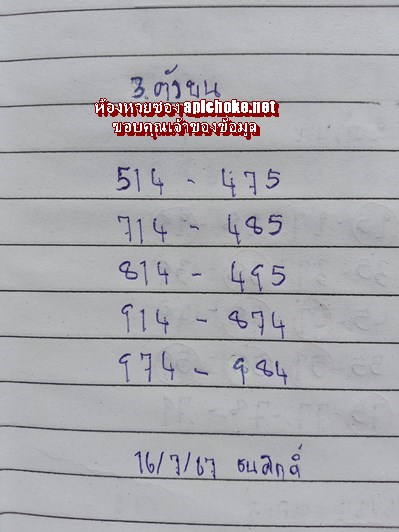 3 ตัวบน
ห้องหวยซอง apichoke.net
ขอบคุณเจ้าของข้อมูล
514 - 475
714 - 485
814 - 495
914 - 874
974 - 984
16/7/67 ธนศักดิ์